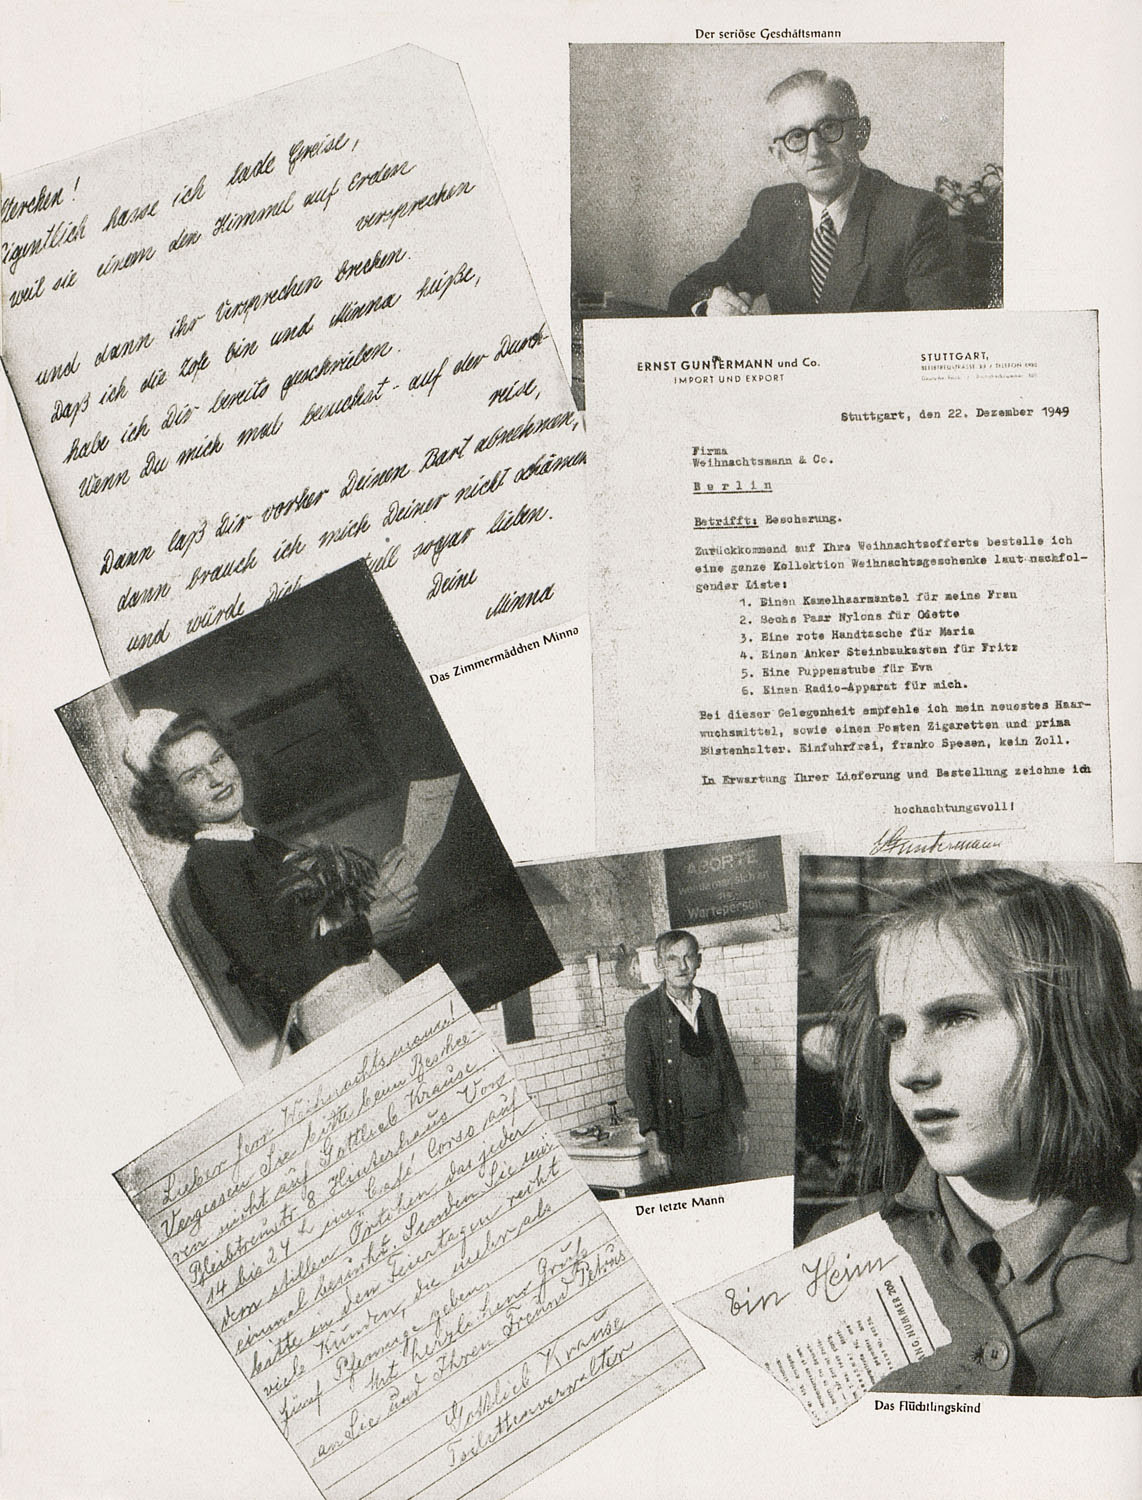 Der seriöse Geschäftsmann
Eigentlich hasse ich Greise,
weil sie einem den Himmel auf Erden
versprechen
und dann ihr Versprechen brechen.
Daß ich die Zofe bin und Minna heiße,
habe ich Dir bereits geschrieben.
Wenn Du mich mal besuchst - auf der Durch-
reise,
Dann laß Dir vorher Deinen Bart abnehmen,
dann brauch ich mich Deiner nicht schämen
und würde Dich sogar lieben.
Deine
Minna
Das Zimmermädchen Minna
ERNST GUNTERMANN und Co.
IMPORT UND EXPORT
STUTTGART,
Stuttgart, den 22. Dezember 1949
Firma
Weihnachtsmann & Co.
Berlin
Betrifft: Bescherung.
Zurückkommend auf Ihre Weihnachtsofferte bestelle ich
eine ganze Kollektion Weihnachtsgeschenke laut nachfol-
gender Liste:
1. Einen Kamelhaarmantel für meine Frau
2. Sechs Paar Nylons für Odette
3. Eine rote Handtasche für Maria
4. Einen Anker Steinbaukasten für Fritz
5. Eine Puppenstube für Eva
6. Einen Radio-Apparat für mich.
Bei dieser Gelegenheit empfehle ich mein neuestes Haar-
wuchsmittel, sowie einen Posten Zigaretten und prima
Büstenhalter. Einfuhrfrei, franko Spesen, kein Zoll.
In Erwartung Ihrer Lieferung und Bestellung zeichne ich
hochachtungsvoll!
ABORTE
Warteperson
Der letzte Mann
Lieber Herr Weihnachtsmann!
Vergessen Sie bitte beim Besche-
ren nicht auf Gottlieb Krause
Bleibtreustr. 8 Hinterhaus Von
14 bis 24 Café Corso auf
dem stillen Örtchen, das jeder
einmal besucht. Senden Sie mir
bitte an den Feiertagen recht
viele Kunden, die mehr als
fünf Pfennige geben.
Mit herzlichem Gruß
an Sie und Ihren Freund Petrus
Gottlieb Krause
Toilettenverwalter
Ein Heim
NUMMER 200
Das Flüchtlingskind